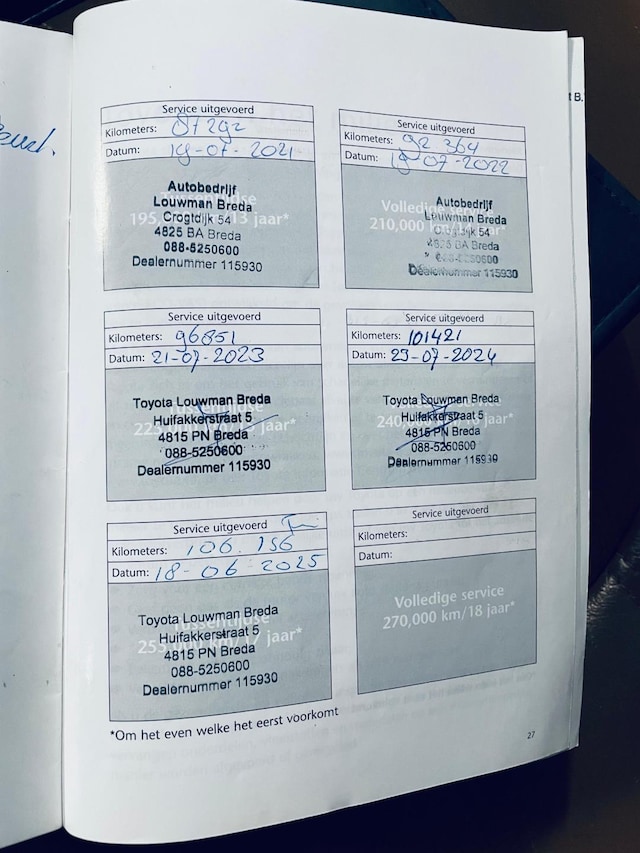 eurl.
t B.
Service uitgevoerd
Kilometers: 87292
Datum: 19-07-2021
Autobedrijf
Louwman Breda
Crogtdijk 54
4825 BA Breda
088-5250600
Dealernummer 115930
195, 13 jaar*
Service uitgevoerd
Kilometers: 92 364
Datum: 19-07-2022
Volledige serv
210,000 km/14 jaar*
Autobedrijf
Louwman Breda
Crogtdijk 54
4825 BA Breda
Dealernummer 115930
Service uitgevoerd
Kilometers: 96851
Datum: 21-07-2023
Toyota Louwman Breda
Huifakkerstraat 5
4815 PN Breda
088-5250600
Dealernummer 115930
Service uitgevoerd
Kilometers: 101421
Datum: 23-07-2024
Toyota Louwman Breda
Huifakkerstraat 5
4815 PN Breda
088-5250600
Dealernummer 115930
Service uitgevoerd
Kilometers: 106.156
Datum: 18-06-2025
Toyota Louwman Breda
Tussentijdse
Huifakkerstraat 5
255,000 km/17 jaar*
4815 PN Breda
088-5250600
Dealernummer 115930
Service uitgevoerd
Kilometers:
Datum:
Volledige service
270,000 km/18 jaar*
*Om het even welke het eerst voorkomt
27